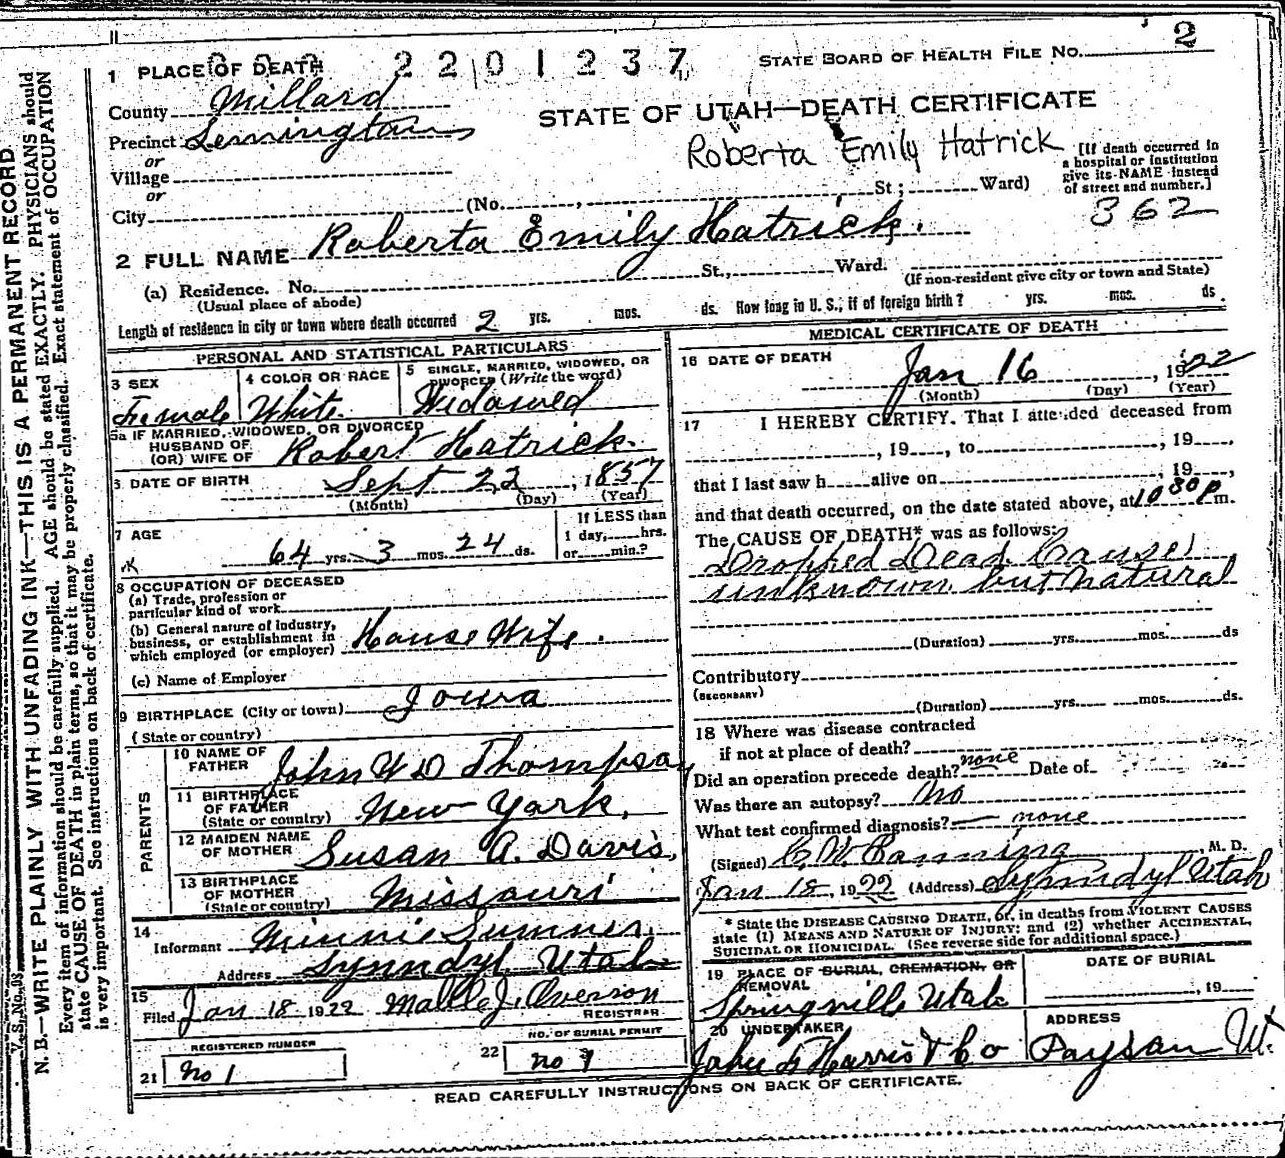 2
STATE BOARD OF HEALTH FILE NO.
2201237
1 PLACE OF DEATH
County Millard
STATE OF UTAH—DEATH CERTIFICATE
Precinct Lemington
Roberta Emily Hatrick
or
Village
or
City (No. , St; Ward)
[If death occurred in
a hospital or institution
give its NAME instead
of street and number.]
362
2 FULL NAME Roberta Emily Hatrick.
(a) Residence. No. St., Ward.
(Usual place of abode)
(If non-resident give city or town and State)
Length of residence in city or town where death occurred 2 yrs. mos. ds. How long in U. S., if of foreign birth? yrs. mos. ds.
PERSONAL AND STATISTICAL PARTICULARS
3 SEX
Female
4 COLOR OR RACE
White
5 SINGLE, MARRIED, WIDOWED, OR
DIVORCED (Write the word)
Widowed
5a IF MARRIED, WIDOWED, OR DIVORCED
HUSBAND OF
(OR) WIFE OF Robert Hatrick.
6 DATE OF BIRTH Sept 22, 1857
(Month) (Day) (Year)
7 AGE
64 yrs. 3 mos. 24 ds.
If LESS than
1 day, hrs.
or min.?
8 OCCUPATION OF DECEASED
(a) Trade, profession or
particular kind of work
(b) General nature of industry,
business, or establishment in
which employed (or employer) House Wife.
(c) Name of Employer
9 BIRTHPLACE (City or town) Iowa
(State or country)
PARENTS
10 NAME OF
FATHER John W D Thompson
11 BIRTHPLACE
OF FATHER
(State or country) New York.
12 MAIDEN NAME
OF MOTHER Susan A. Davis,
13 BIRTHPLACE
OF MOTHER
(State or country) Missouri
14
Informant Minnie Sumner.
Address Lynndyl Utah
15
Filed Jan 18 1922 J. Overson
REGISTRAR
REGISTERED NUMBER
21 No 1
NO. OF BURIAL PERMIT
22 no 1
MEDICAL CERTIFICATE OF DEATH
16 DATE OF DEATH
Jan 16, 1922
(Month) (Day) (Year)
17 I HEREBY CERTIFY. That I attended deceased from
, 19 , to , 19 ,
that I last saw h alive on , 19 ,
and that death occurred, on the date stated above, at 10 30 p m.
The CAUSE OF DEATH* was as follows:
Dropped Dead Cause
unknown but natural
(Duration) yrs. mos. ds
Contributory
(SECONDARY)
(Duration) yrs. mos. ds.
18 Where was disease contracted
if not at place of death?
Did an operation precede death? none Date of
Was there an autopsy? No
What test confirmed diagnosis? none
(Signed) , M. D.
Jan 18, 1922 (Address) Lynndyl Utah
* State the DISEASE CAUSING DEATH, or, in deaths from VIOLENT CAUSES
state (1) MEANS AND NATURE OF INJURY; and (2) whether ACCIDENTAL,
SUICIDAL OR HOMICIDAL. (See reverse side for additional space.)
19 PLACE OF BURIAL, CREMATION, OR
REMOVAL
Springville Utah
DATE OF BURIAL
, 19
20 UNDERTAKER
Harris & Co
ADDRESS
Paysan Ut.
READ CAREFULLY INSTRUCTIONS ON BACK OF CERTIFICATE.
N. B.—WRITE PLAINLY WITH UNFADING INK—THIS IS A PERMANENT RECORD
Every item of information should be carefully supplied. AGE should be stated EXACTLY. PHYSICIANS should
state CAUSE OF DEATH in plain terms, so that it may be properly classified. Exact statement of OCCUPATION
is very important. See instructions on back of certificate.